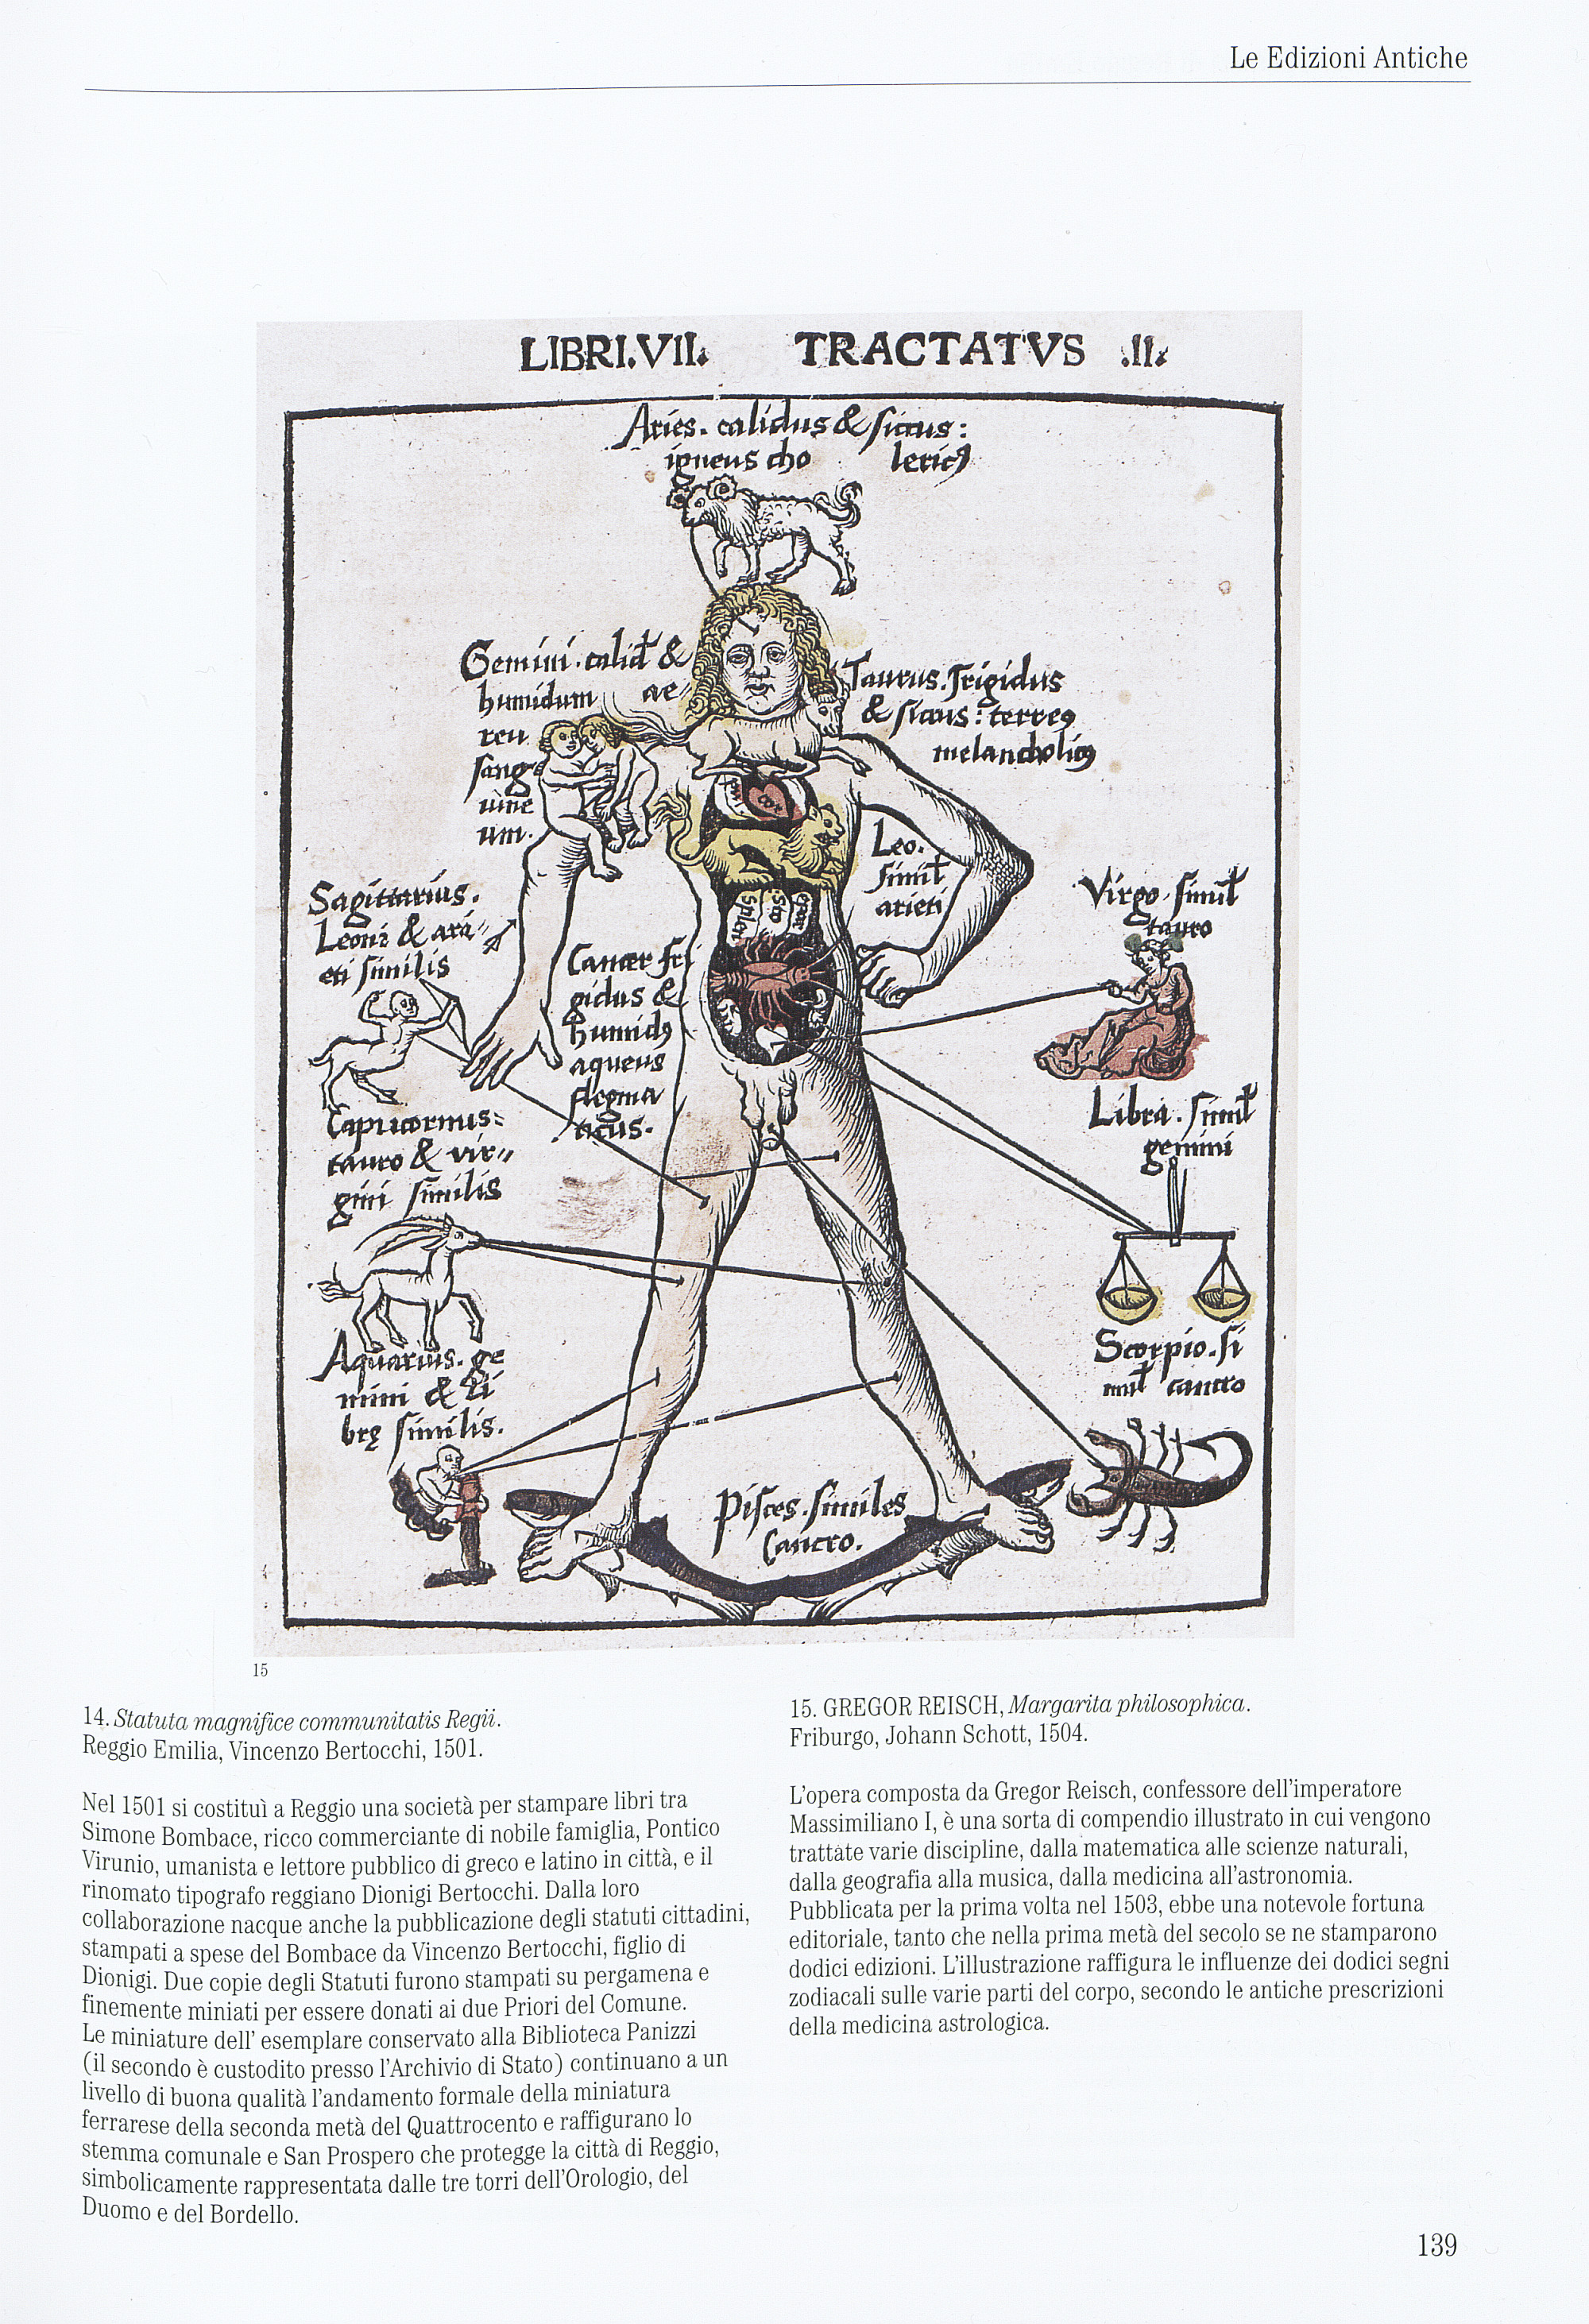 Le Edizioni Antiche
LIBRI.VII. TRACTATVS .II.
Aries. calidus & siccus:
igneus cho lericꝰ
Gemini. calid &
humidum ae⸗
reu
sang
uine
um.
Taurus. frigidus
& siccus: terreꝰ
melancholicꝰ
cor
Leo.
simil
arieti
Splen
Sto
Virgo. simil
tauro
Sagittarius.
Leoni & ari⸗
eti similis
Cancer fri
gidus &
humidꝰ
aqueus
flegma
ticus.
Libra. simil
gemini
Capricornus:
tauro & vir⸗
gini similis
Scorpio. si
mil cancro
Aquarius. ge
mini & li
brę similis.
Pisces. similes
Cancro.
15
14. Statuta magnifice communitatis Regii.
Reggio Emilia, Vincenzo Bertocchi, 1501.
Nel 1501 si costituì a Reggio una società per stampare libri tra
Simone Bombace, ricco commerciante di nobile famiglia, Pontico
Virunio, umanista e lettore pubblico di greco e latino in città, e il
rinomato tipografo reggiano Dionigi Bertocchi. Dalla loro
collaborazione nacque anche la pubblicazione degli statuti cittadini,
stampati a spese del Bombace da Vincenzo Bertocchi, figlio di
Dionigi. Due copie degli Statuti furono stampati su pergamena e
finemente miniati per essere donati ai due Priori del Comune.
Le miniature dell' esemplare conservato alla Biblioteca Panizzi
(il secondo è custodito presso l'Archivio di Stato) continuano a un
livello di buona qualità l'andamento formale della miniatura
ferrarese della seconda metà del Quattrocento e raffigurano lo
stemma comunale e San Prospero che protegge la città di Reggio,
simbolicamente rappresentata dalle tre torri dell'Orologio, del
Duomo e del Bordello.
15. GREGOR REISCH, Margarita philosophica.
Friburgo, Johann Schott, 1504.
L'opera composta da Gregor Reisch, confessore dell'imperatore
Massimiliano I, è una sorta di compendio illustrato in cui vengono
trattate varie discipline, dalla matematica alle scienze naturali,
dalla geografia alla musica, dalla medicina all'astronomia.
Pubblicata per la prima volta nel 1503, ebbe una notevole fortuna
editoriale, tanto che nella prima metà del secolo se ne stamparono
dodici edizioni. L'illustrazione raffigura le influenze dei dodici segni
zodiacali sulle varie parti del corpo, secondo le antiche prescrizioni
della medicina astrologica.
139